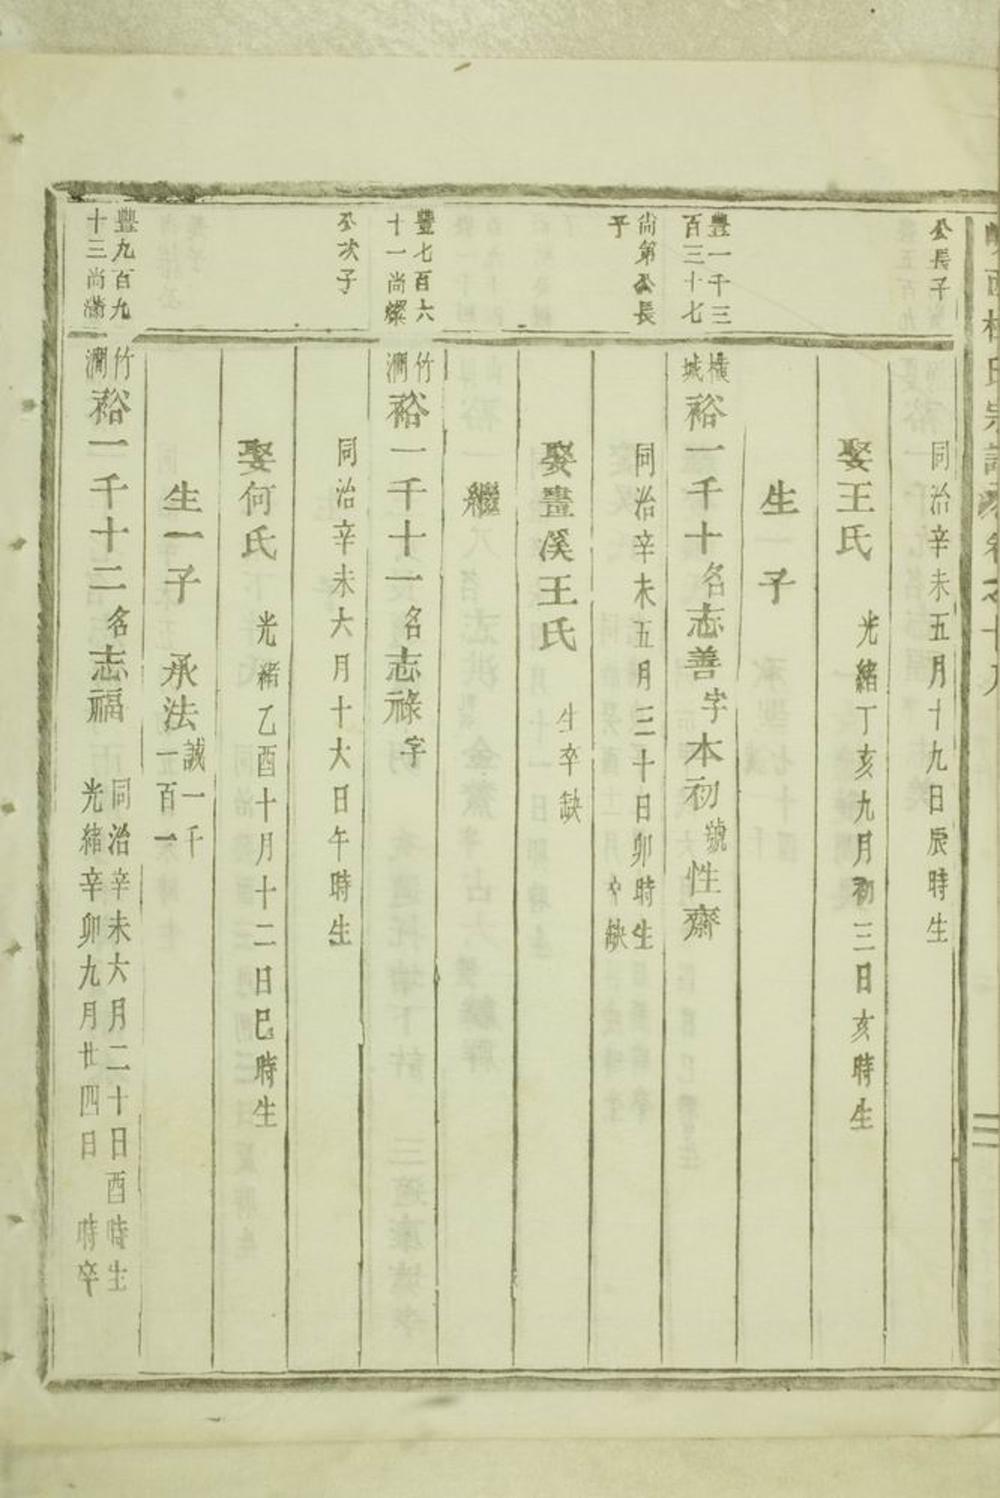 公長子
同治辛未五月十九日辰時生
娶王氏 光緒丁亥九月初三日亥時生
生 子
豐一千三百三十七
尚第公長子
橫城 裕一千十名志善字本初號性齋
同治辛未五月三十日卯時生 卒缺
娶畫溪王氏 生卒缺
繼
豐七百六十一尚燦
公次子
竹澗 裕一千十一名志祿字
同治辛未六月十六日午時生
娶何氏 光緒乙酉十月十二日巳時生
生一子 承法 誠一千一百一
豐九百九十三尚滿
竹澗 裕一千十二名志福 同治辛未六月二十日酉時生 光緒辛卯九月廿四日 時卒